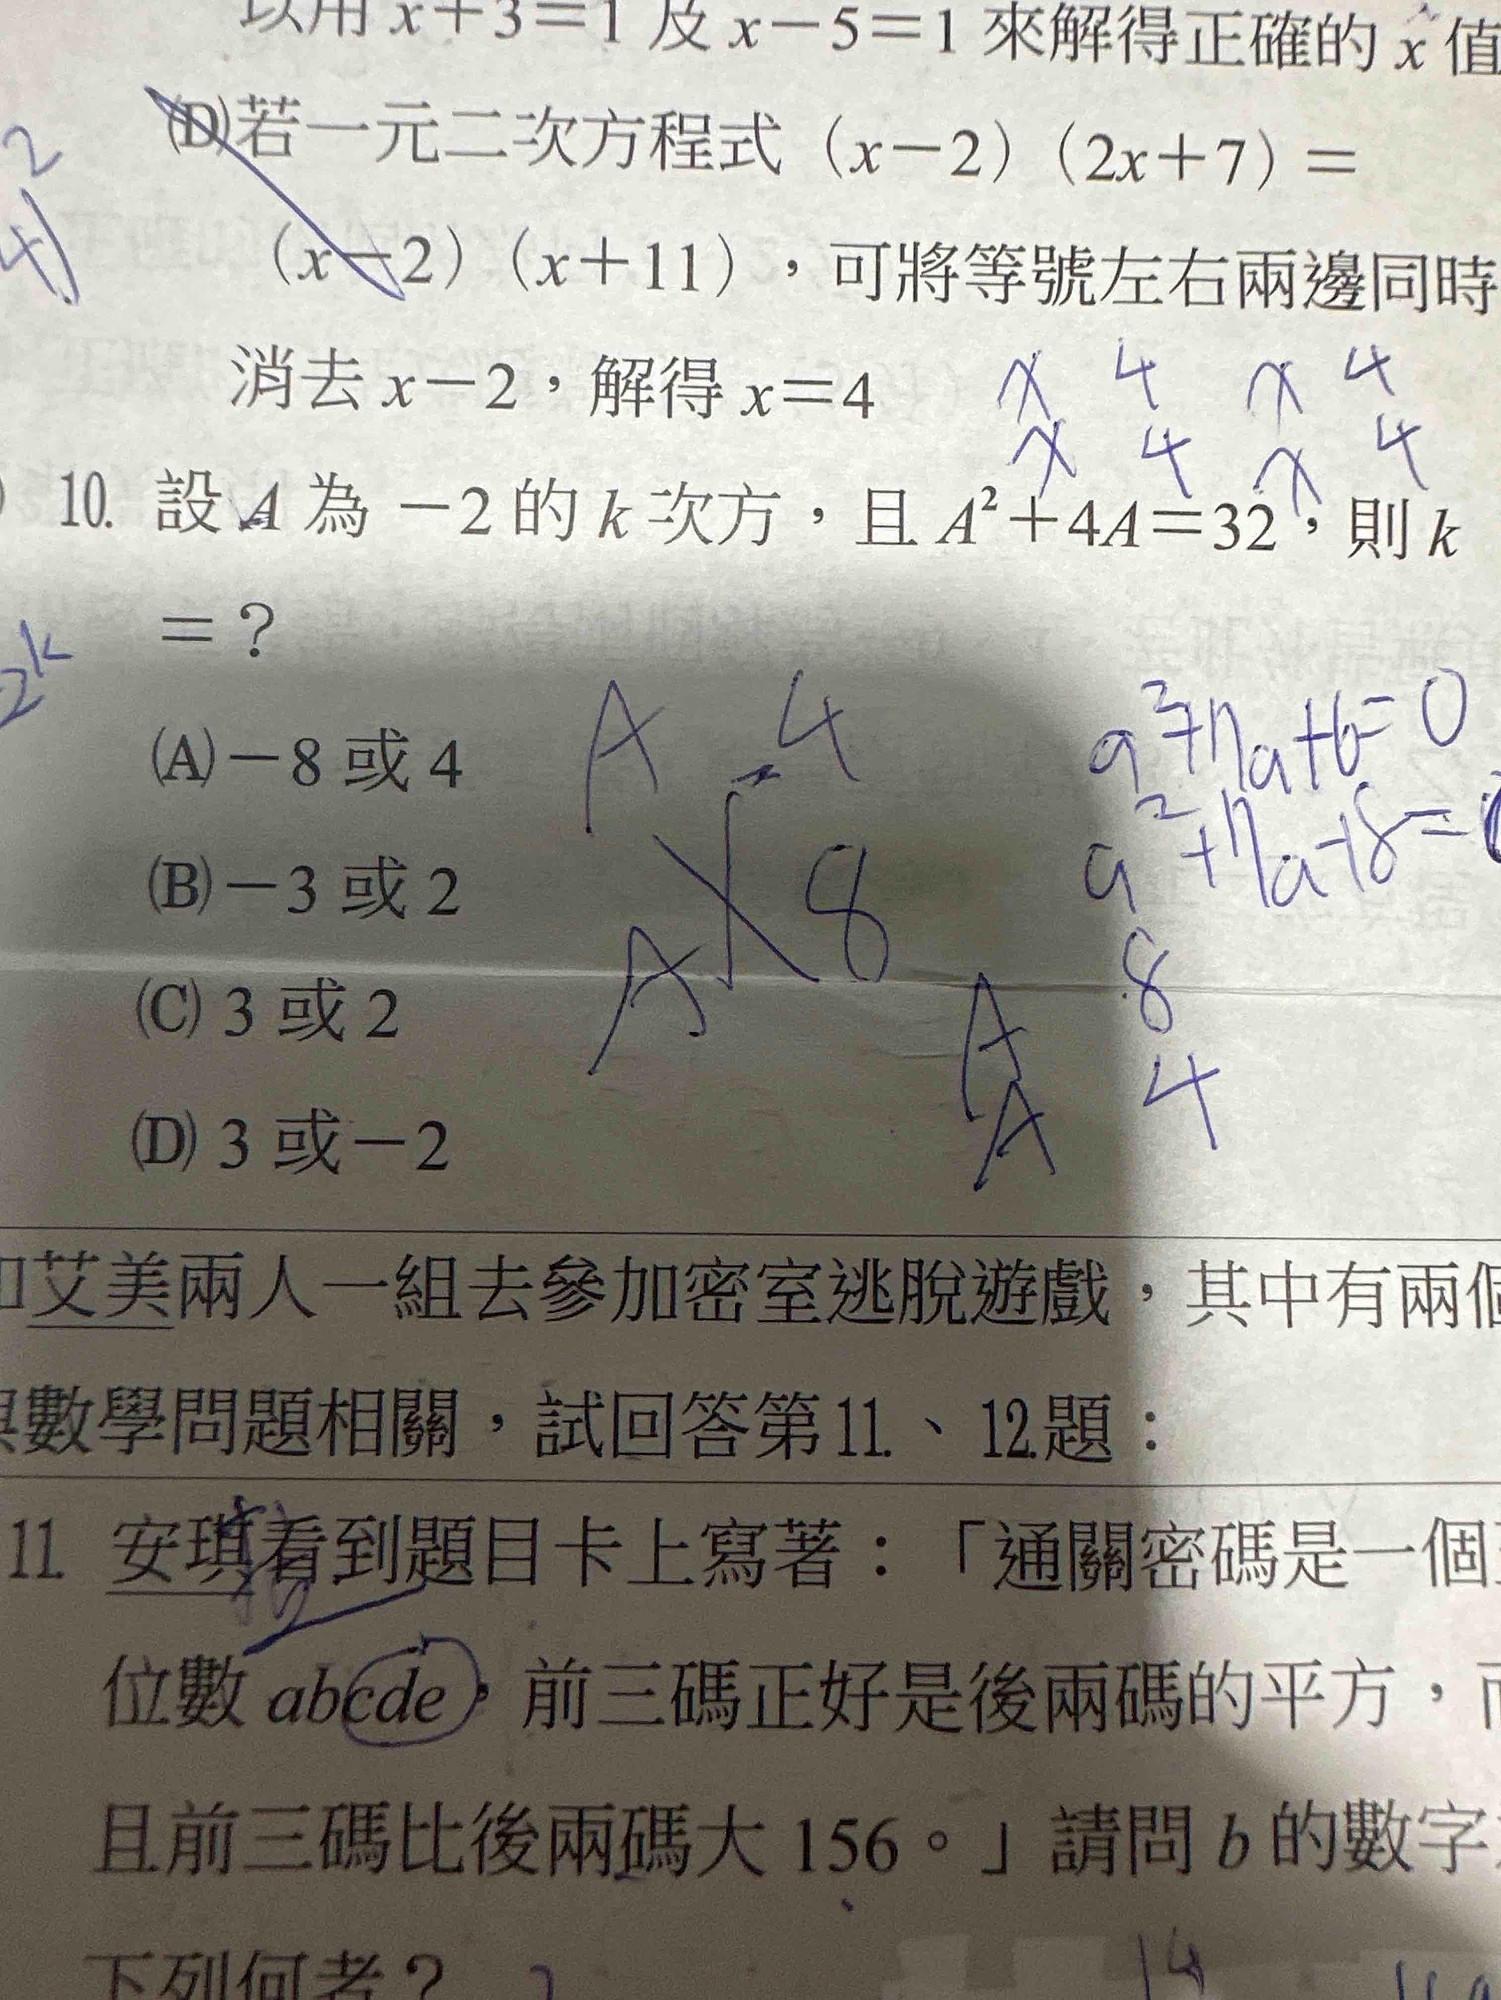 以用 x＋3＝1 及 x－5＝1 來解得正確的 x 值
(D)若一元二次方程式（x－2）（2x＋7）＝
（x－2）（x＋11），可將等號左右兩邊同時
消去 x－2，解得 x＝4
x 4 x 4
x 4 x 4
10. 設 A 為 －2 的 k 次方，且 A²＋4A＝32，則 k
＝？
(A)－8 或 4
(B)－3 或 2
(C) 3 或 2
(D) 3 或－2
A -4
A 8
A 8
A 4
艾美兩人一組去參加密室逃脫遊戲，其中有兩個
數學問題相關，試回答第11.、12.題：
11. 安琪看到題目卡上寫著：「通關密碼是一個
位數 abcde，前三碼正好是後兩碼的平方，而
且前三碼比後兩碼大 156。」請問 b 的數字
下列何者？
14